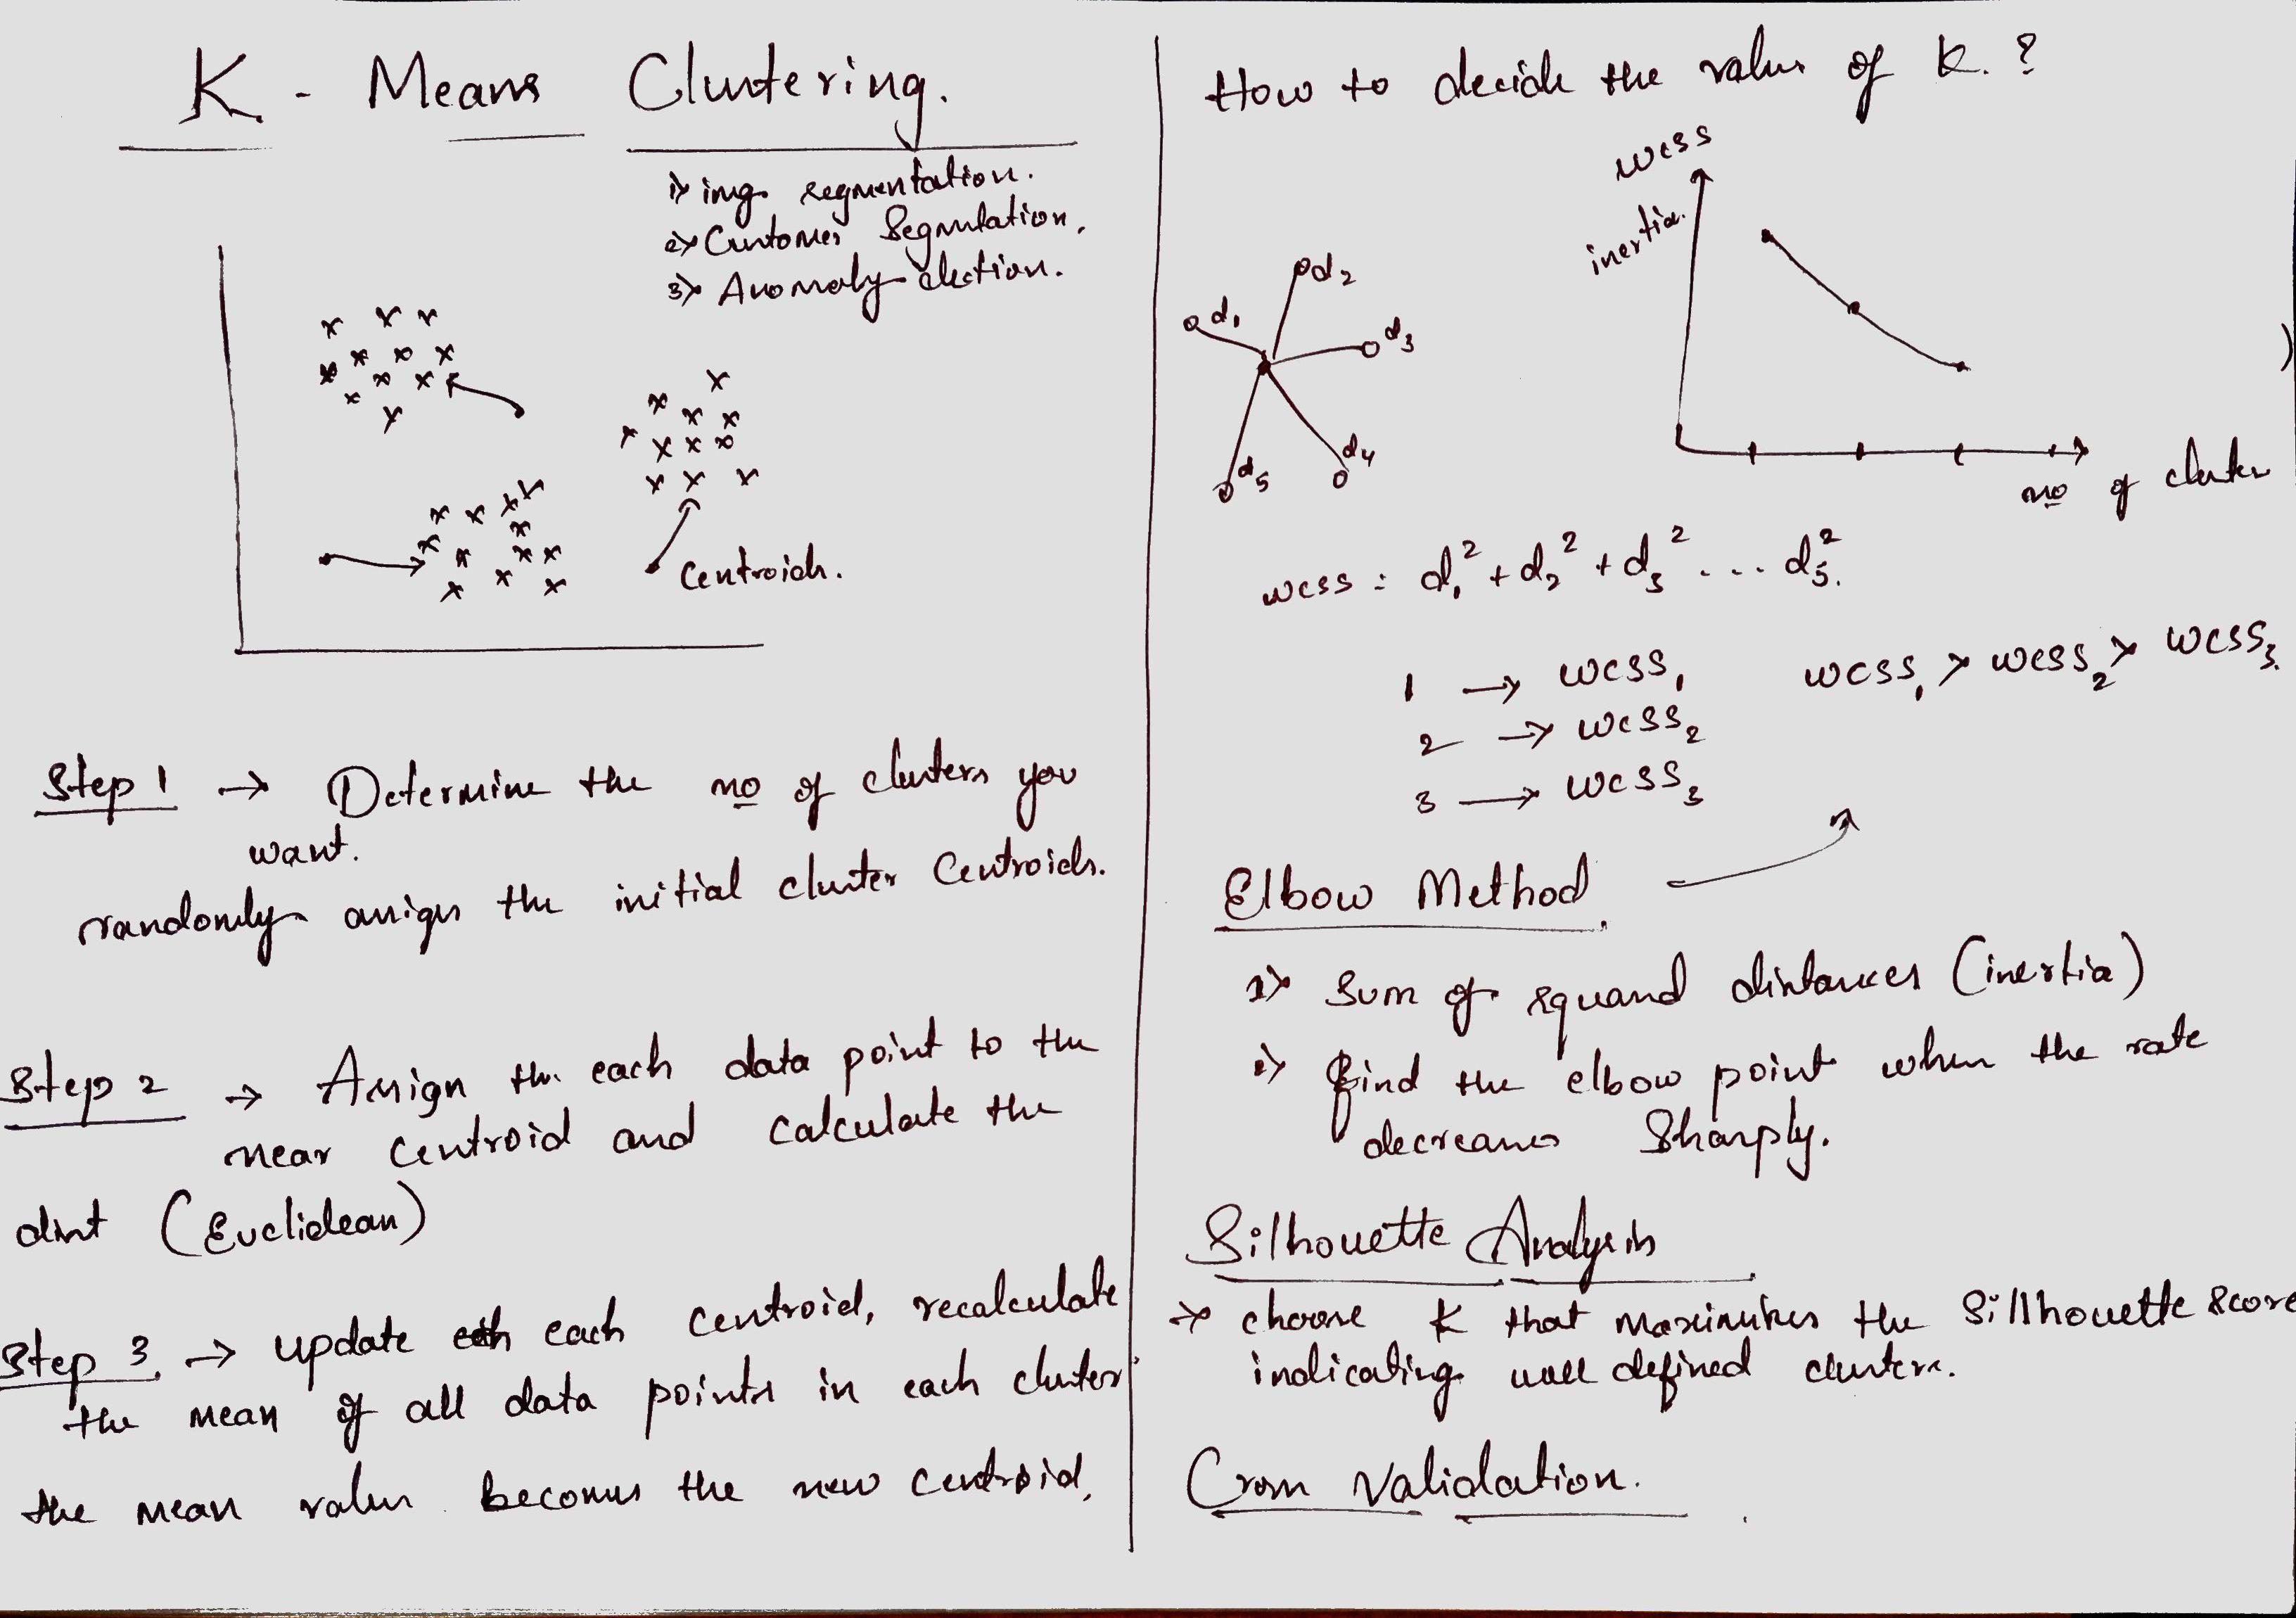 K - Means Clustering.
1) img segmentation.
2) Customer Segmntation.
3) Anomaly dection.
Centroids.
Step 1 → Determine the no of clusters you
want.
randomly assign the initial cluster Centroids.
Step 2 → Assign the each data point to the
near centroid and calculate the
dist (Euclidean)
Step 3. → update each centroid, recalculate
the mean of all data points in each cluster
the mean value becomes the new centroid.
How to decide the value of K.?
wcss
inertia.
d1
d2
d3
d4
d5
no of cluster
)
wcss = d1² + d2² + d3² ... d5².
1 → wcss1 wcss1 > wcss2 > wcss3.
2 → wcss2
3 → wcss3
Elbow Method.
1) Sum of squared distances (inertia)
2) Find the elbow point when the rate
decreases Sharply.
Silhouette Analysis
→ choose K that maximizes the Sillhouette score
indicating well defined clusters.
Cross Validation.